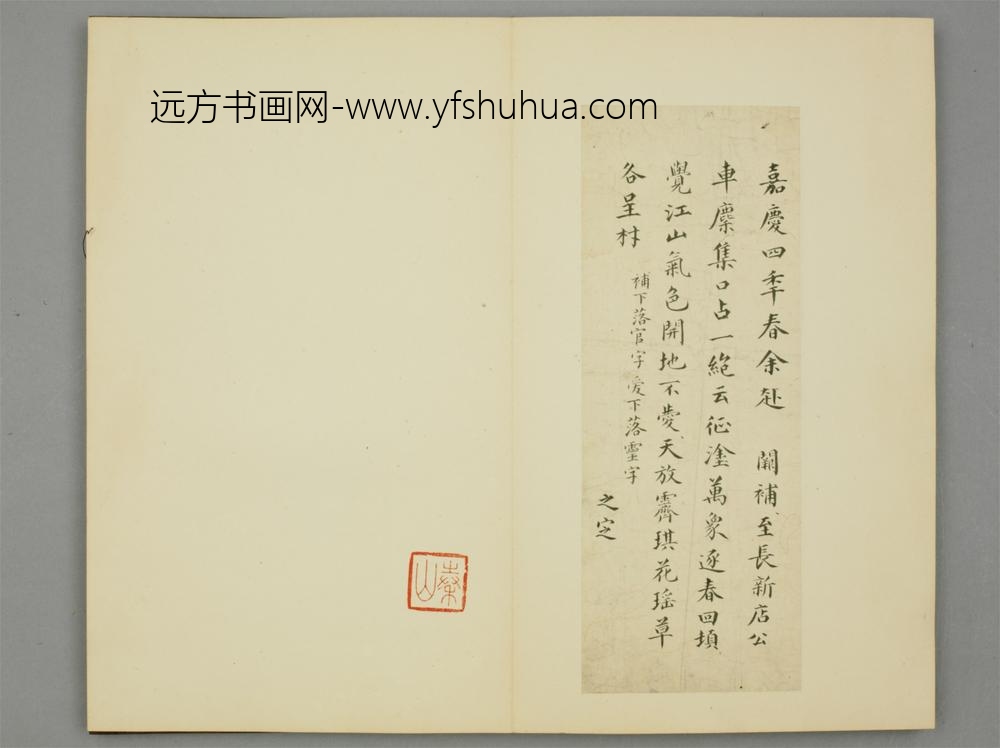 远方书画网-www.yfshuhua.com
嘉慶四秊春余赴 闕補至長新店公
車麇集口占一絶云征塗萬象逐春回頃
覺江山氣色開地不愛天放霽琪花瑶草
各呈材
補下落官字愛下落靈字
之定
秦山